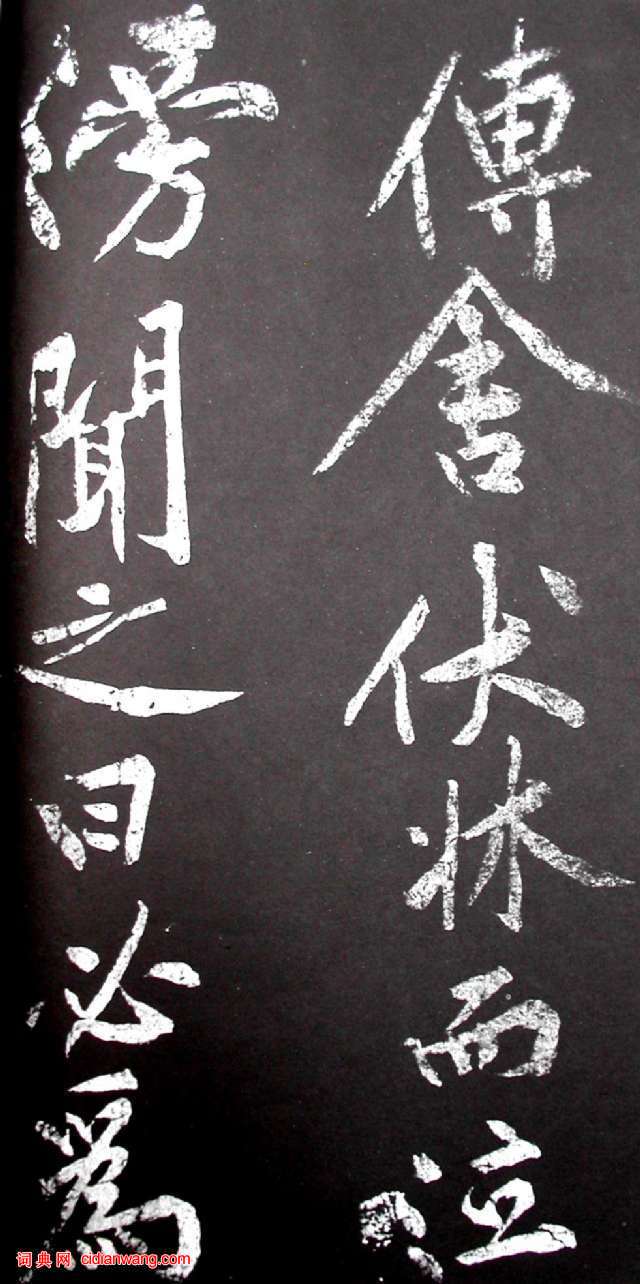 傳舍伏牀而泣
傍聞之曰必為
词典网 cidianwang.com